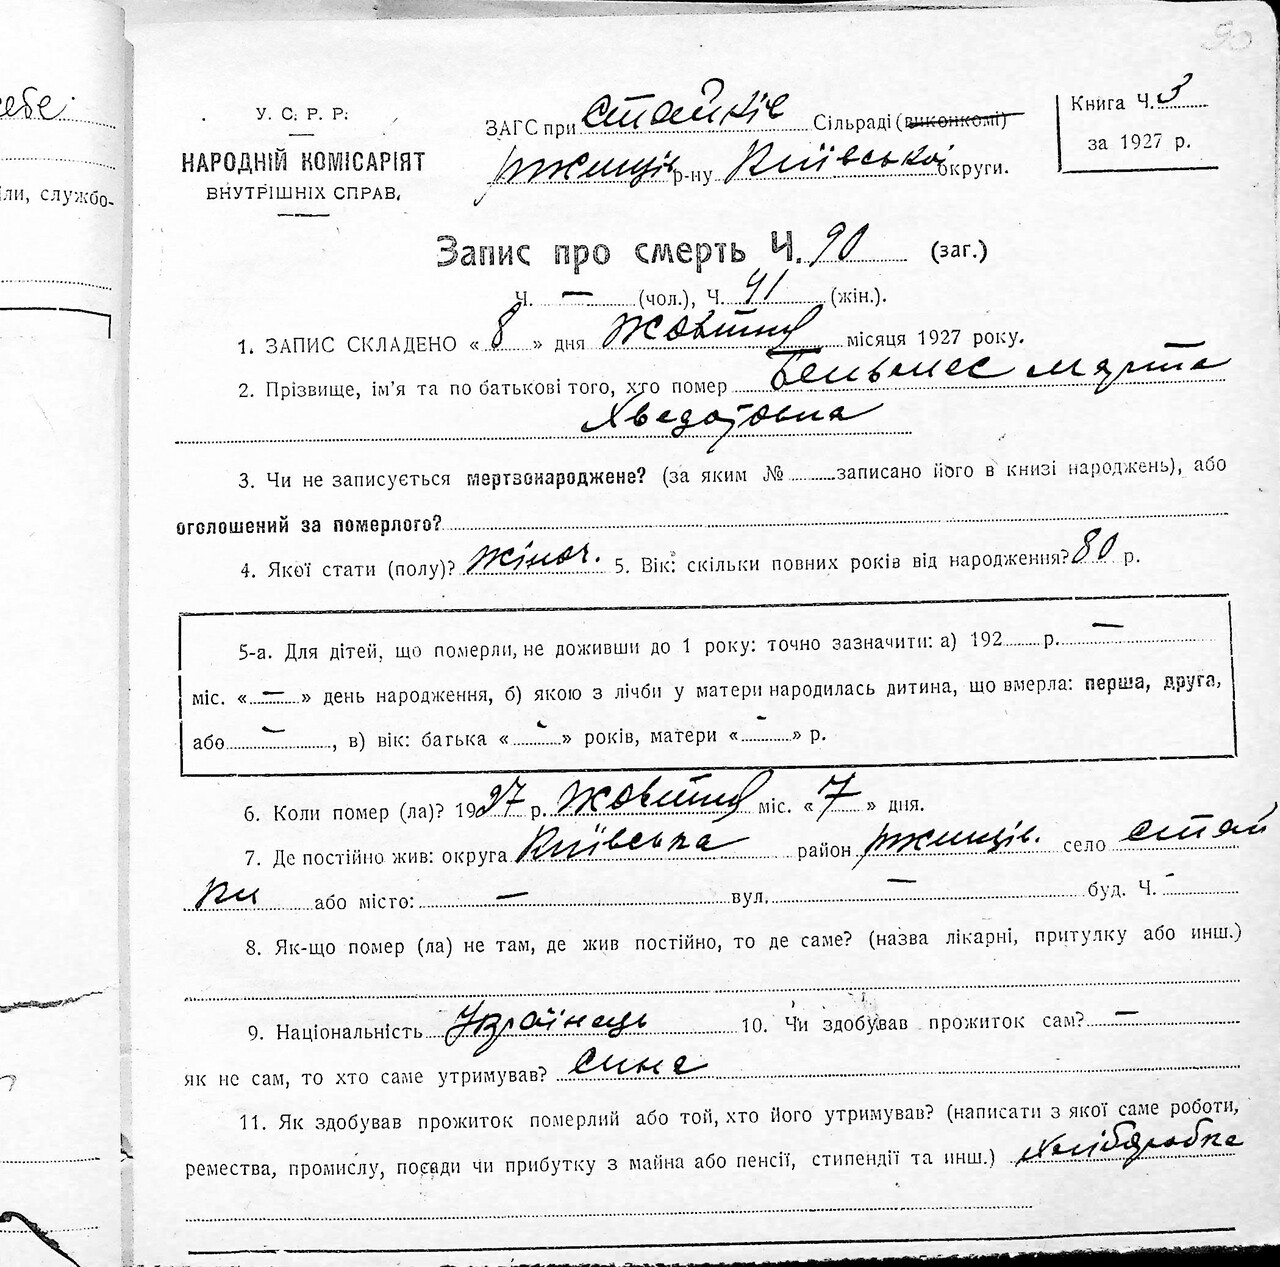 90
себе.
ли, службо-
У. С. Р. Р.
НАРОДНІЙ КОМІСАРІЯТ
ВНУТРІШНІХ СПРАВ.
ЗАГС при Стайків Сільраді (виконкомі)
Ржищів р-ну Київської округи.
Книга Ч. 3
за 1927 р.
Запис про смерть Ч. 90 (заг.)
Ч. — (чол.), Ч. 41 (жін.).
1. ЗАПИС СКЛАДЕНО « 8 » дня Жовтня місяця 1927 року.
2. Прізвище, ім'я та по батькові того, хто помер Марта
Хведотовна
3. Чи не записується мертвонароджене? (за яким № записано його в книзі народжень), або
оголошений за померлого?
4. Якої стати (полу)? жіноч. 5. Вік: скільки повних років від народження? 80 р.
5-а. Для дітей, що померли, не доживши до 1 року: точно зазначити: а) 192 р. —
міс. « — » день народження, б) якою з лічби у матери народилась дитина, що вмерла: перша, друга,
або — , в) вік: батька « - » років, матери « - » р.
6. Коли помер (ла)? 1927 р. Жовтня міс. « 7 » дня.
7. Де постійно жив: округа Київська район Ржищів. село Стай
ки або місто: — вул. — буд. Ч. -
8. Як-що помер (ла) не там, де жив постійно, то де саме? (назва лікарні, притулку або инш.)
9. Національність Українець 10. Чи здобував прожиток сам? —
як не сам, то хто саме утримував? сина
11. Як здобував прожиток померлий або той, хто його утримував? (написати з якої саме роботи,
ремества, промислу, посади чи прибутку з майна або пенсії, стипендії та инш.) Хлібороба